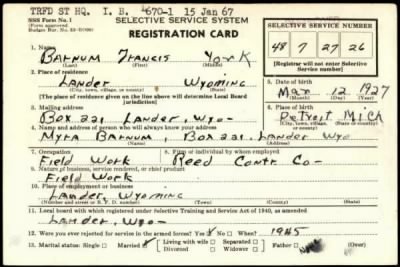 TRFD ST HQ. I. B. #670-1 15 Jan 67
SSS Form No. 1
(Form approved.
SELECTIVE SERVICE SYSTEM
REGISTRATION CARD
SELECTIVE SERVICE NUMBER
48 7 27 26
[Registrar will not enter Selective Service number]
1. Name
Barnum Francis York
(Last) (First) (Middle)
2. Place of residence
Lander Wyoming
(City, town, village, or county) (State)
(The place of residence given on the line above will determine Local Board jurisdiction)
5. Date of birth
Mar 12 1927
3. Mailing address
Box 221, Lander, Wyo—
6. Place of birth
Detroit MICH
4. Name and address of person who will always know your address
Myra Barnum, Box 221, Lander Wyo
7. Occupation
Field Work
8. Firm or individual by whom employed
Reed Contr. Co—
9. Nature of business, service rendered, or chief product
Field Work
10. Place of employment or business
Lander, Wyoming
(Number and street or R. F. D. number) (Town) (County) (State)
11. Local board with which registered under Selective Training and Service Act of 1940, as amended
Lander, Wyo—
12. Were you ever rejected for service in the armed forces? No Yes When? 1945
13. Marital status: Single Married Living with wife Separated Divorced Widower Father